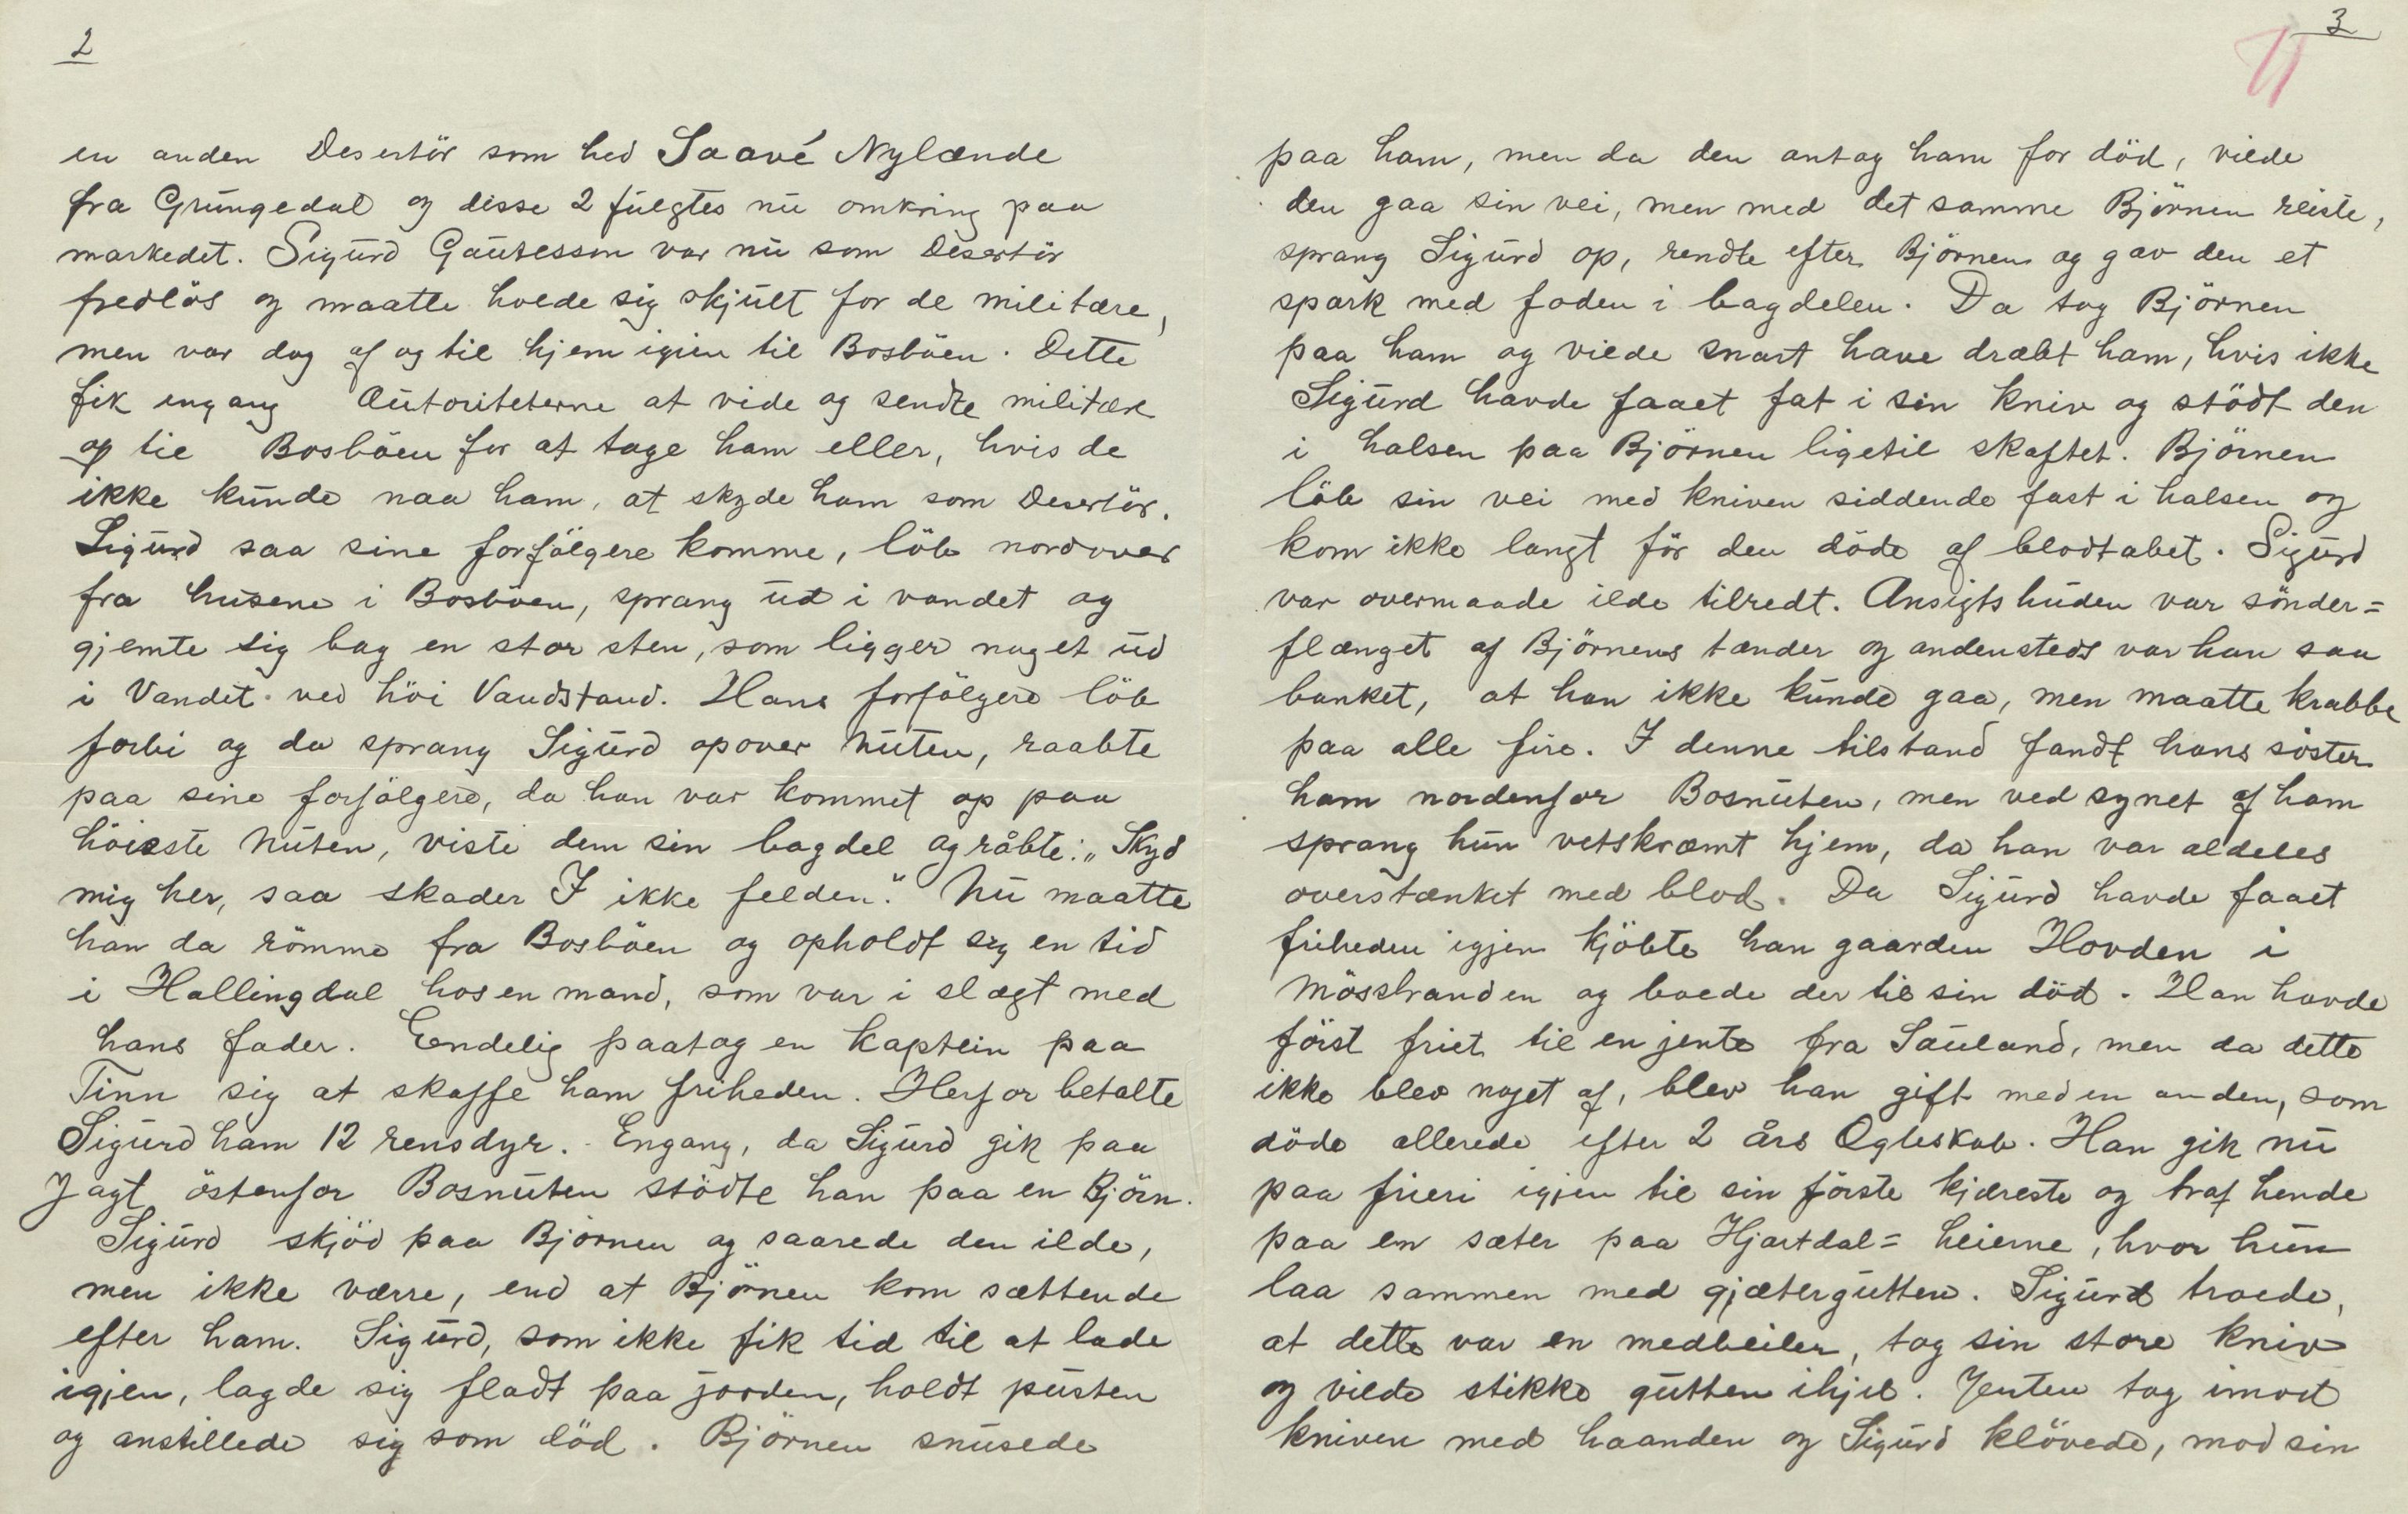 2
en anden Desertör som hed Saavé Nylænde
fra Grungedal og disse 2 fulgtes nu omkring paa
markedet. Sigurd Gautesson var nu som Desertör
fredlös og maatte holde sig skjult for de militære,
men var dog af og til hjem igien til Bosböen. Dette
fik engang Autoriteterne at vide og sendte militære
op til Bosböen for at tage ham eller, hvis de
ikke kunde naa ham, at skyde ham som Desertör.
Sigurd saa sine forfölgere komme, löb nordover
fra husene i Bosböen, sprang ud i vandet og
gjemte sig bag en stor sten, som ligger noget ud
i Vandet ved höi Vandstand. Hans forfölgere löb
forbi og da sprang Sigurd opover Nuten, raabte
paa sine forfölgere, da han var kommet op paa
höieste Nuten, viste dem sin bagdel og råbte: „Skyd
mig her, saa skader I ikke felden." Nu maatte
han da römme fra Bosböen og opholdt sig en tid
i Hallingdal hos en mand, som var i slægt med
hans fader. Eendelig paatog en Kaptein paa
Tinn sig at skaffe ham friheden. Herfor betalte
Sigurd ham 12 rensdyr. - Engang, da Sigurd gik paa
Jagt östenfor Bosnuten stödte han paa en Björn.
Sigurd skjöd paa Björnen og saarede den ilde,
men ikke værre, end at Björnen kom sættende
efter ham. Sigurd, som ikke fik tid til at lade
igjen, lagde sig fladt paa jorden, holdt pusten
og anstillede sig som död. Björnen snusede
3
paa ham, men da den antog ham for död, vilde
den gaa sin vei, men med det samme Björnen reiste,
sprang Sigurd op, rendte efter Björnen og gav den et
spark med foden i bagdelen. Da tog Björnen
paa ham og vilde snart have dræbt ham, hvis ikke
Sigurd havde faaet fat i sin Kniv og stödt den
i halsen paa Björnen ligetil skaftet. Björnen
löb sin vei med kniven siddende fast i halsen og
kom ikke langt för den döde af blodtabet. Sigurd
var overmaade ilde tilredt. Ansigtshuden var sönder=
flænget af Björnens tænder og andensteds var han saa
banket, at han ikke kunde gaa, men maatte krabbe
paa alle fire. I denne tilstand fandt hans söster
ham nordenfor Bosnuten, men ved synet af ham
sprang hun vetskræmt hjem, da han var aldeles
overstænket med blod. Da Sigurd havde faaet
friheden igjen kjöbte han gaarden Hovden i
Mösstranden og boede der til sin död. Han havde
först friet til en jente fra Sauland, men da dette
ikke blev noget af, blev han gift med en anden, som
döde allerede efter 2 års Egteskab. Han gik nu
paa frieri igjen til sin förste kjæreste og traf hende
paa en sæter paa Hjartdal= heierne, hvor hun
laa sammen med gjætergutten. Sigurd troede,
at dette var en medbeiler, tog sin store kniv
og vilde stikke gutten ihjel. Jenten tog imod
kniven med haanden og Sigurd klövede, mod sin